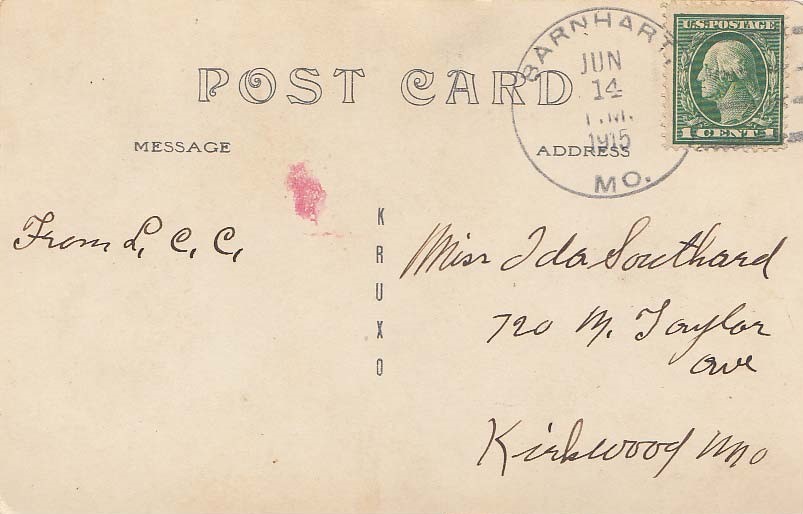 BARNHART, MO.
JUN
14
P.M.
1915
U.S. POSTAGE
1 CENT 1
POST CARD
MESSAGE
ADDRESS
From L. C. C.
KRUXO
Miss Ida Southard
720 N. Taylor
ave
Kirkwood Mo